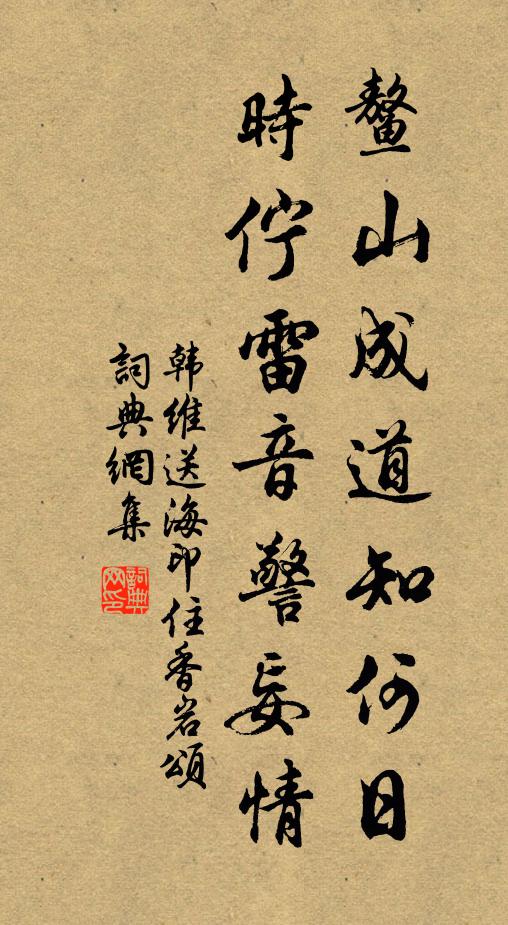 鰲山成道知何日
時佇雷音警妄情
韩維送海印住香岩頌
詞典網集
詞典网印